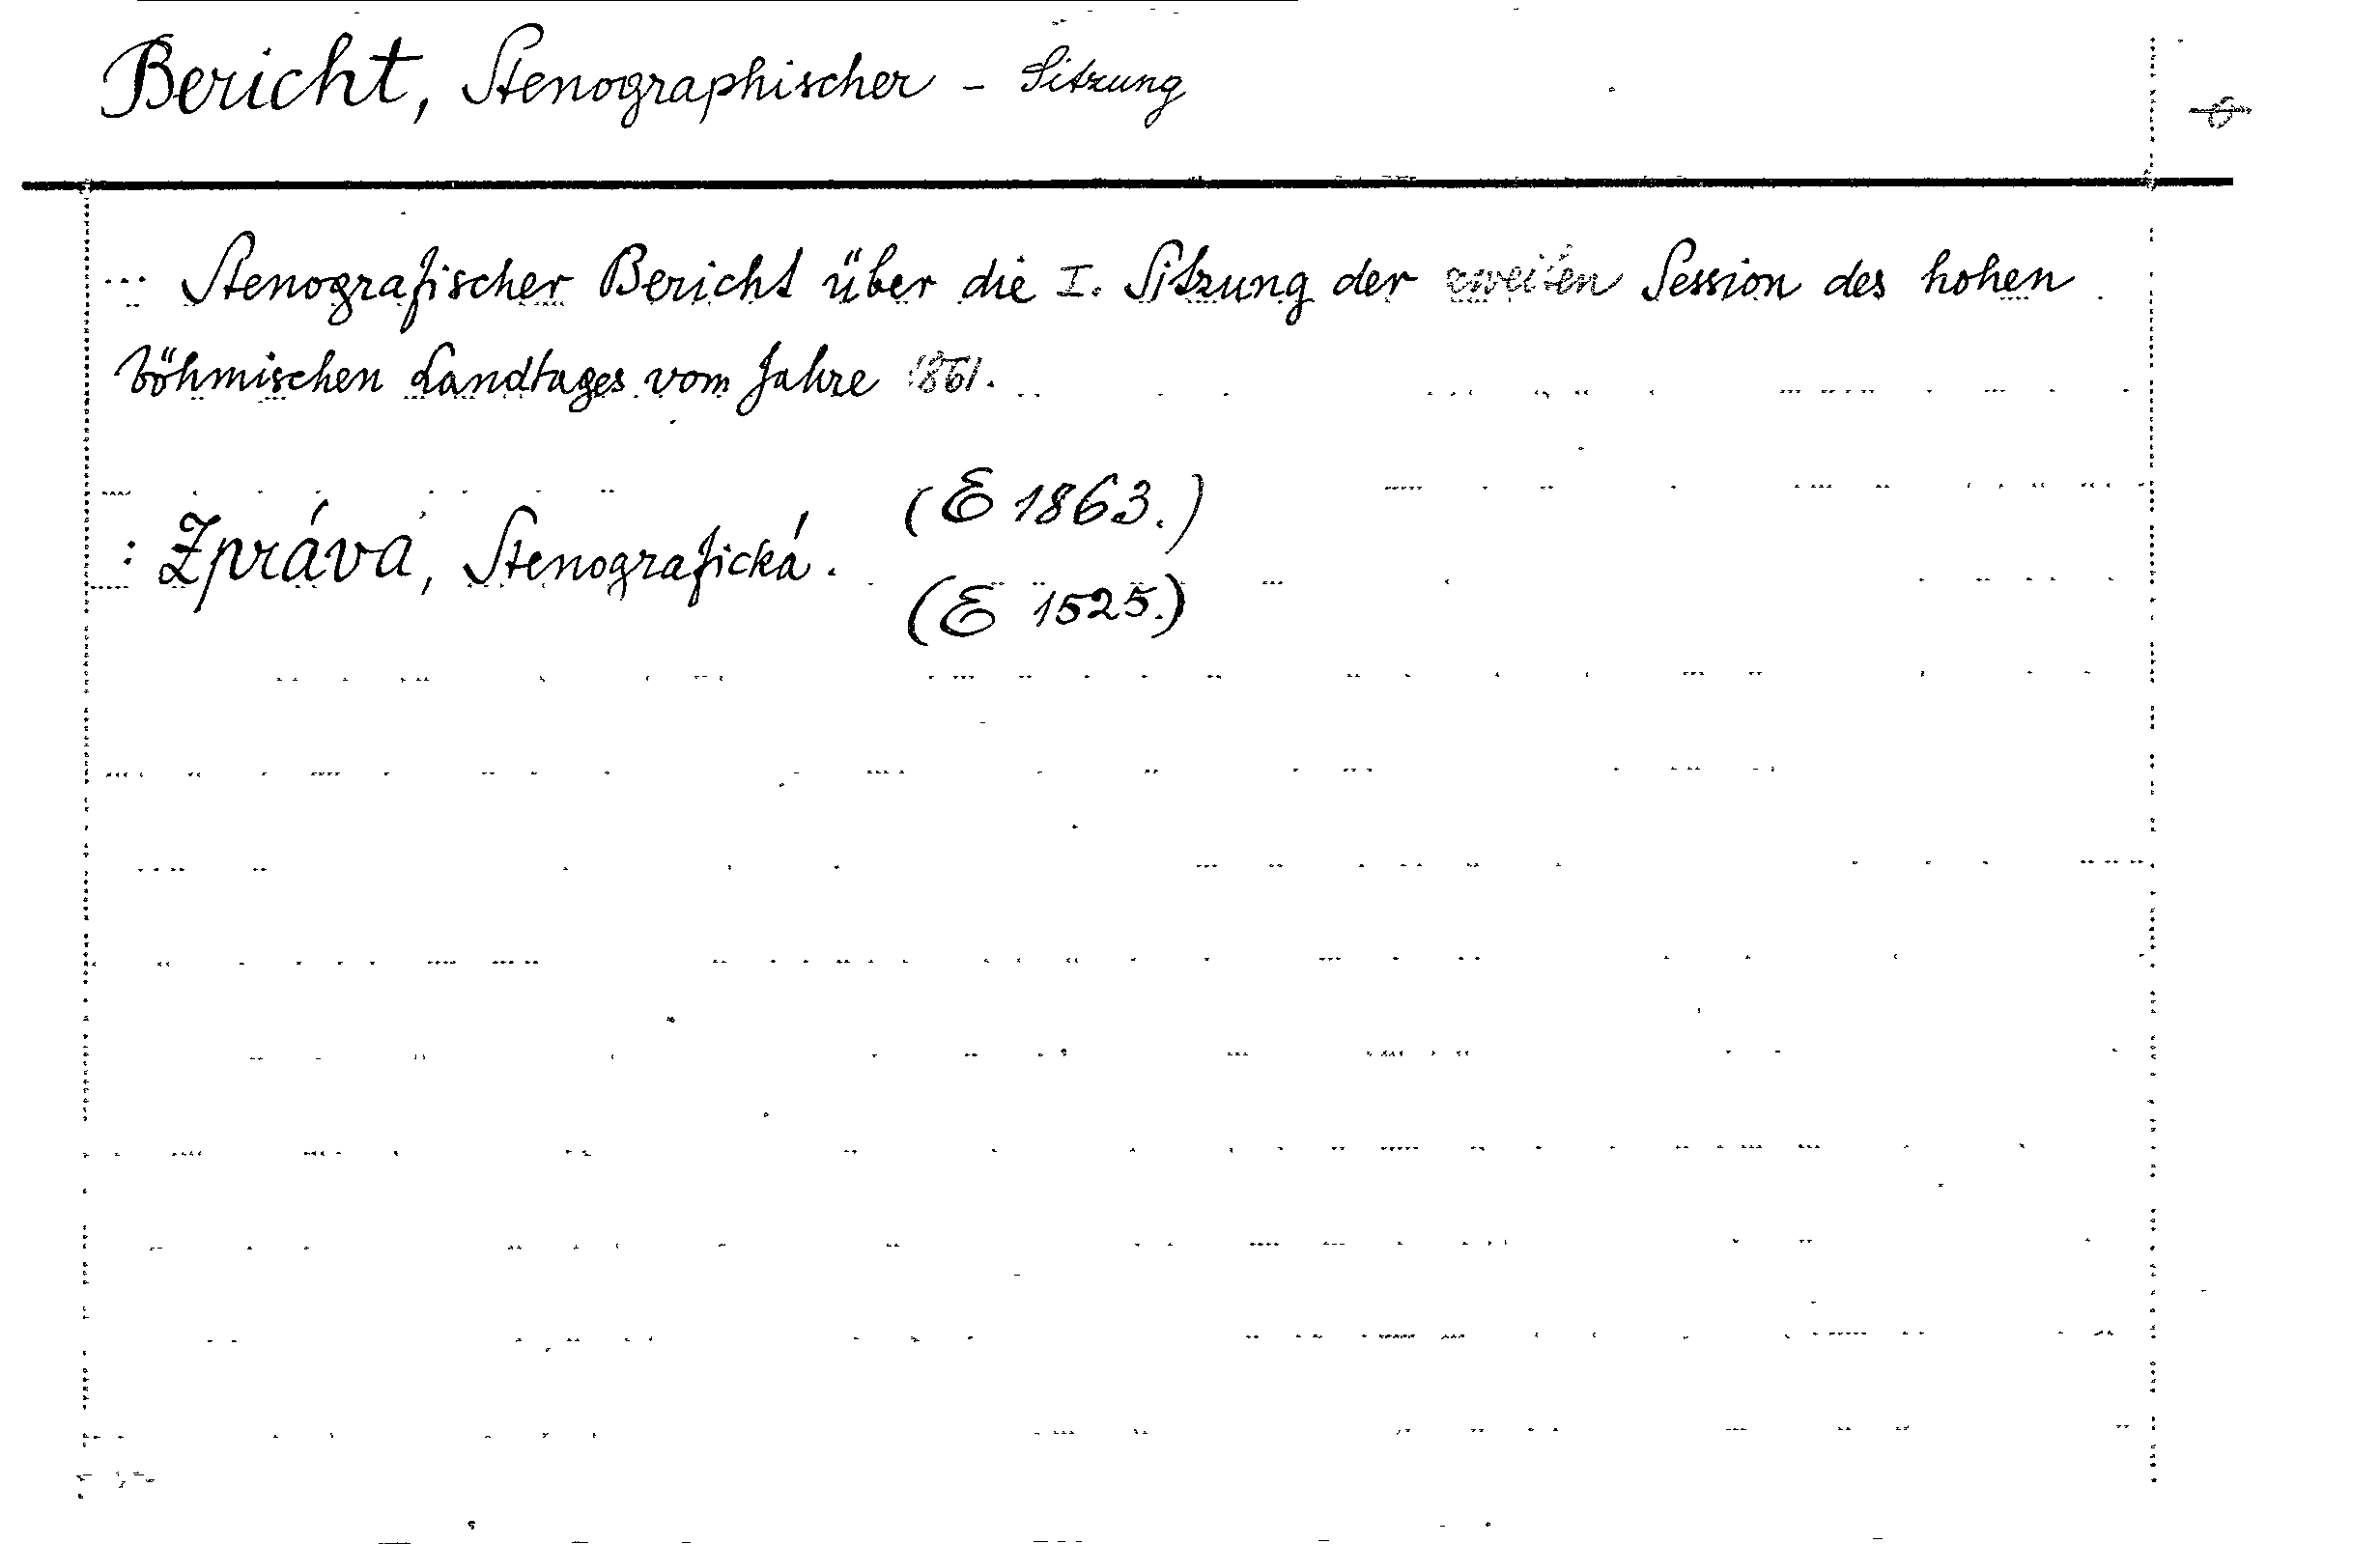 Bericht, Stenographischer - Sitzung
... Stenografischer Bericht über die I. Sitzung der zweiten Session des hohen
böhmischen Landtages vom Jahre 1861.
(E 1863.)
: Zpráva, Stenografická.
(E 1525.)